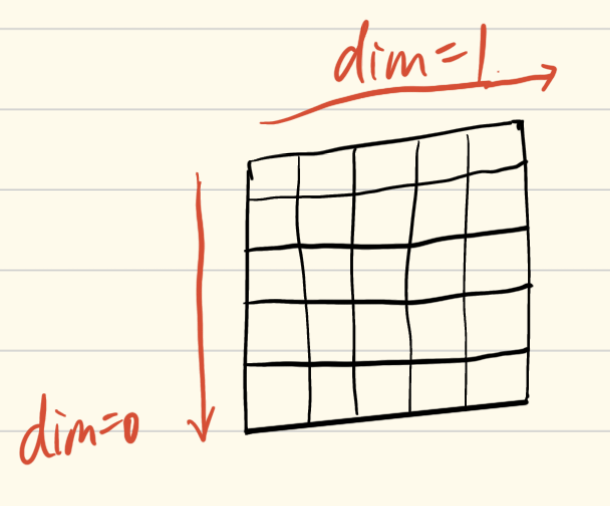 dim=1
dim=0